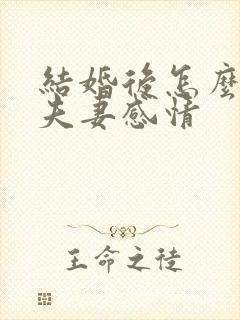 結婚後怎麼
夫妻感情
王命之徒